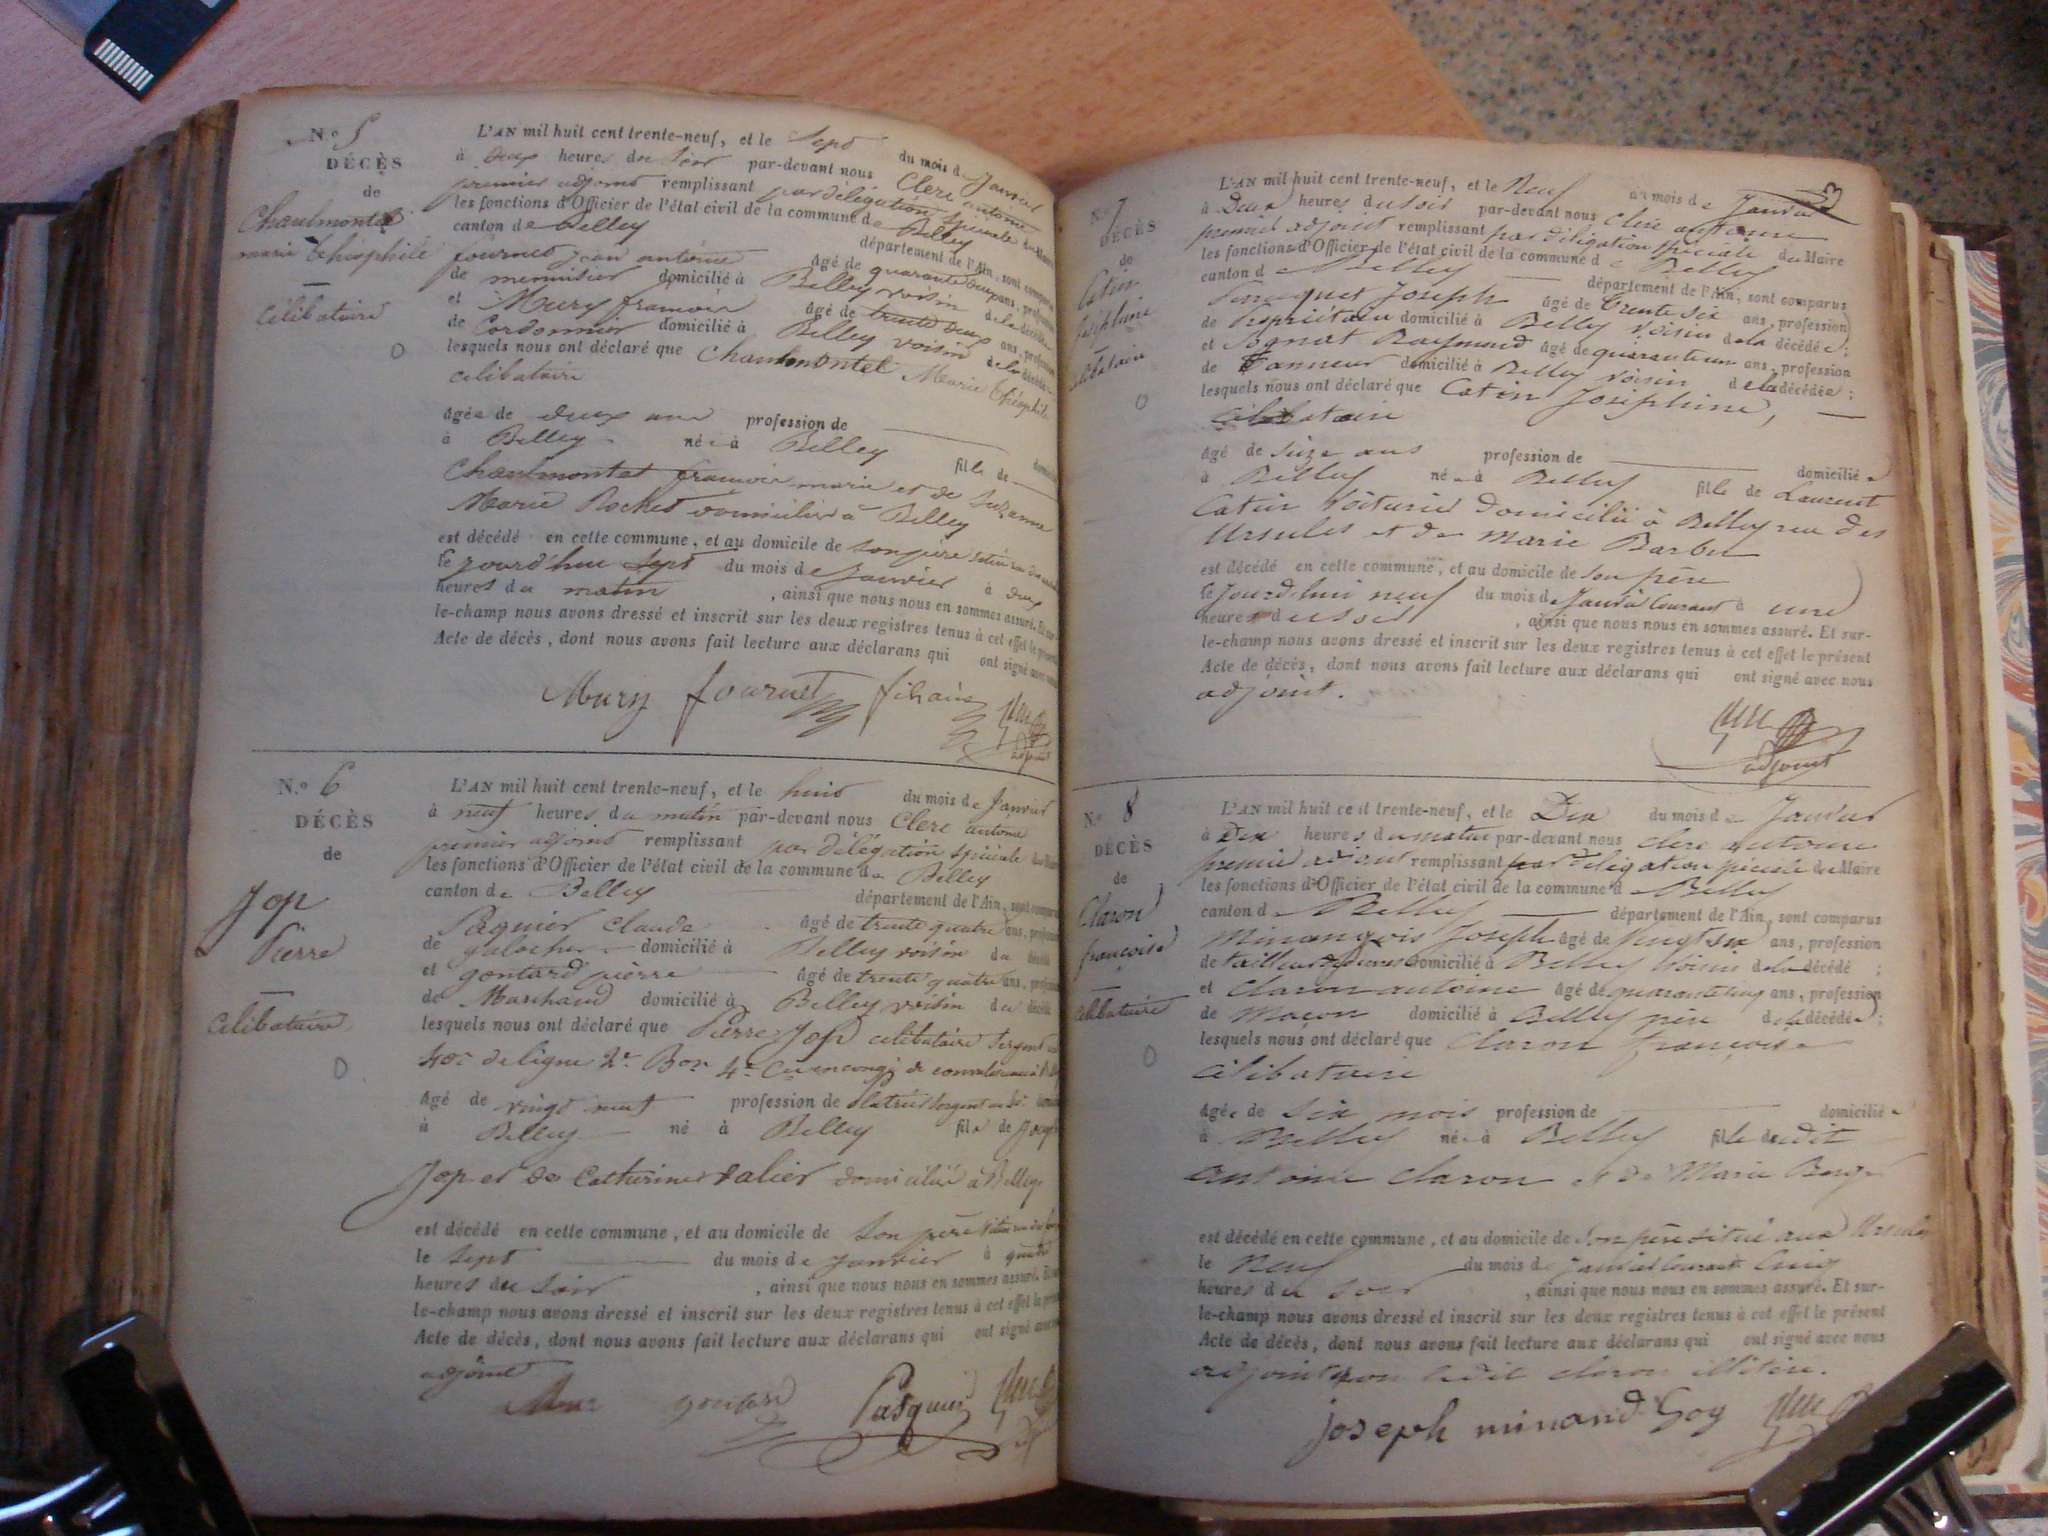 N.º 5
DÉCÈS
de
Chaulmontel
marie théophile
célibataire
L'AN mil huit cent trente-neuf, et le sept du mois de Janvier
à deux heures du soir par-devant nous Clerc antoine
premier adjoint remplissant par délégation spéciale du Maire
les fonctions d'Officier de l'état civil de la commune de Belley
canton de Belley département de l'Ain, sont comparus
fournet jean antoine âgé de quarante deux ans, profession
de menuisier domicilié à Belley voisin de la décédée
et Mury françois âgé de trente deux ans, profession
de Cordonnier domicilié à Belley voisin de la décédée
lesquels nous ont déclaré que Chaulmontel Marie théophile
célibataire
âgée de deux ans profession de
à Belley née à Belley fille de
Chaulmontel françois marie et de Suzanne
Marie Rochet domiciliés à Belley
est décédé en cette commune, et au domicile de son père
le jourd'hui sept du mois de Janvier à deux
heures du matin, ainsi que nous nous en sommes assuré. Et sur-
le-champ nous avons dressé et inscrit sur les deux registres tenus à cet effet le présent
Acte de décès, dont nous avons fait lecture aux déclarans qui ont signé avec nous
Mury fournet Clerc
adjoint
N.º 6
DÉCÈS
de
Jop
Pierre
célibataire
L'AN mil huit cent trente-neuf, et le huit du mois de Janvier
à neuf heures du matin par-devant nous Clerc antoine
premier adjoint remplissant par délégation spéciale du Maire
les fonctions d'Officier de l'état civil de la commune de Belley
canton de Belley département de l'Ain, sont comparus
Pasquier Claude âgé de trente quatre ans, profession
de galocher domicilié à Belley voisin du décédé
et gontard pierre âgé de trente quatre ans, profession
de Marchand domicilié à Belley voisin du décédé
lesquels nous ont déclaré que Pierre Jop célibataire Sergent au
40e de ligne 2e Bon 4e Cie en congé de convalescence à
âgé de vingt neuf profession de
à Belley né à Belley fils de Joseph
Jop et de Catherine valier domiciliés à Belley
est décédé en cette commune, et au domicile de son père
le sept du mois de Janvier à quatre
heures du soir, ainsi que nous nous en sommes assuré. Et sur-
le-champ nous avons dressé et inscrit sur les deux registres tenus à cet effet le présent
Acte de décès, dont nous avons fait lecture aux déclarans qui ont signé avec nous
adjoint
gontard Pasquier Clerc
N.º 7
DÉCÈS
de
Catin
Joséphine
célibataire
L'AN mil huit cent trente-neuf, et le Neuf du mois de Janvier
à Deux heures du soir par-devant nous Clerc antoine
premier adjoint remplissant par délégation spéciale du Maire
les fonctions d'Officier de l'état civil de la commune de Belley
canton de Belley département de l'Ain, sont comparus
Joseph âgé de trente six ans, profession
de Propriétaire domicilié à Belley voisin de la décédée;
et Sognat Raymond âgé de quarante un ans, profession
de Tanneur domicilié à Belley voisin de la décédée;
lesquels nous ont déclaré que Catin Joséphine,
célibataire
âgé de seize ans profession de domiciliée
à Belley née à Belley fille de Laurent
Catin Voiturier domicilié à Belley rue des
Ursules et de Marie Barbu
est décédé en cette commune, et au domicile de son père
le Jourd'hui neuf du mois de Janvier Courant à une
heure du soir, ainsi que nous nous en sommes assuré. Et sur-
le-champ nous avons dressé et inscrit sur les deux registres tenus à cet effet le présent
Acte de décès, dont nous avons fait lecture aux déclarans qui ont signé avec nous
adjoint.
Clerc
adjoint
N.º 8
DÉCÈS
de
Claron
françoise
célibataire
L'AN mil huit cent trente-neuf, et le Dix du mois de Janvier
à Dix heures du matin par-devant nous Clerc antoine
premier adjoint remplissant par délégation spéciale du Maire
les fonctions d'Officier de l'état civil de la commune de Belley
canton de Belley département de l'Ain, sont comparus
Minangois Joseph âgé de vingt six ans, profession
de tailleur de pierres domicilié à Belley voisin de la décédé;
et Claron antoine âgé de quarante cinq ans, profession
de Maçon domicilié à Belley père de la décédée;
lesquels nous ont déclaré que Claron françoise
célibataire
âgée de six mois profession de domiciliée
à Belley née à Belley fille dudit
antoine Claron et de Marie Berg
est décédé en cette commune, et au domicile de son père situé aux Ursules
le Neuf du mois de Janvier Courant Cinq
heures du soir, ainsi que nous nous en sommes assuré. Et sur-
le-champ nous avons dressé et inscrit sur les deux registres tenus à cet effet le présent
Acte de décès, dont nous avons fait lecture aux déclarans qui ont signé avec nous
adjoint non ledit Claron illitéré.
joseph minandGoy Clerc